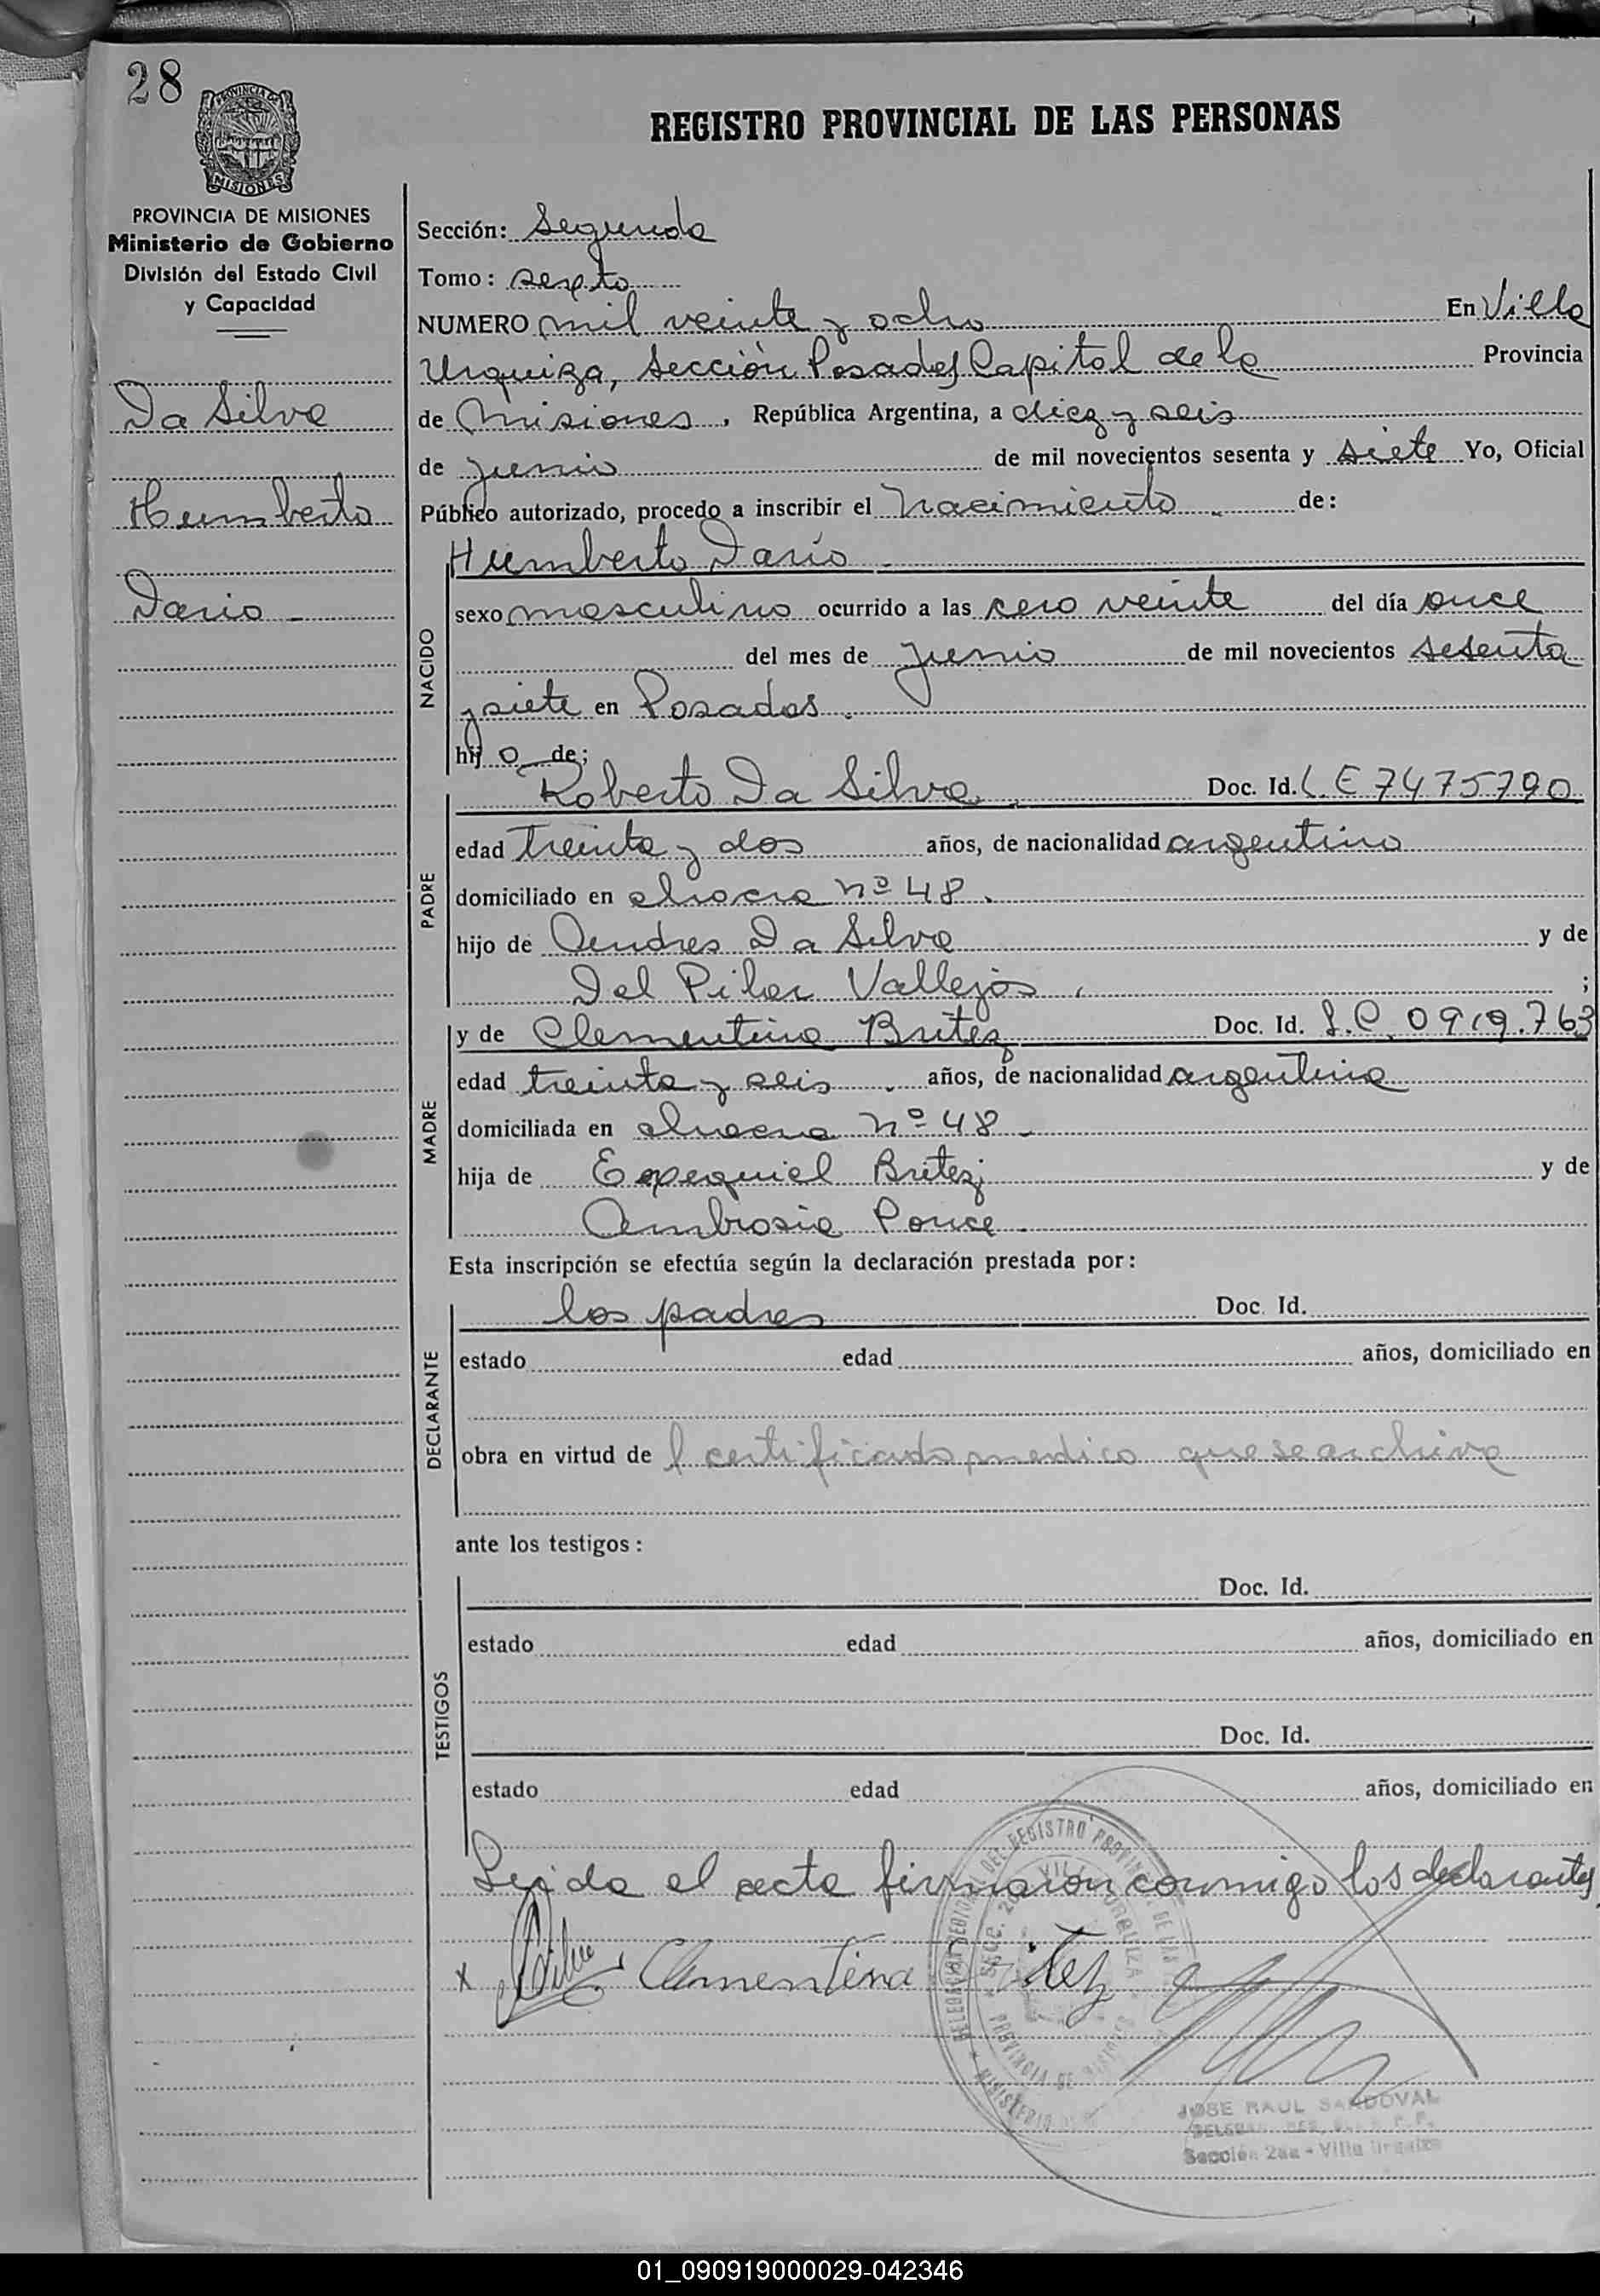 28
PROVINCIA DE
MISIONES
PROVINCIA DE MISIONES
Ministerio de Gobierno
División del Estado Civil
y Capacidad
Da Silva
Humberto
Dario -
REGISTRO PROVINCIAL DE LAS PERSONAS
Sección: Segunda
Tomo: sexto
NUMERO mil veinte y ocho En Villa
Urquiza, Sección Posadas Capital de la Provincia
de Misiones, República Argentina, a diez y seis
de junio de mil novecientos sesenta y siete Yo, Oficial
Público autorizado, procedo a inscribir el nacimiento de:
NACIDO
Humberto Darío
sexo masculino ocurrido a las cero veinte del día once
del mes de junio de mil novecientos sesenta
y siete en Posadas.
hijo de;
PADRE
Roberto Da Silva Doc. Id. L E 7475790
edad treinta y dos años, de nacionalidad argentino
domiciliado en chacra nº 48.
hijo de Andres Da Silva y de
Del Pilar Vallejos ;
MADRE
y de Clementina Britez Doc. Id. L.C. 0919.763
edad treinta y seis años, de nacionalidad argentina
domiciliada en chacra nº 48 -
hija de Exequiel Britez y de
Ambrosia Ponce.
Esta inscripción se efectúa según la declaración prestada por:
DECLARANTE
los padres Doc. Id.
estado edad años, domiciliado en
obra en virtud de l certificado medico que se archiva
ante los testigos:
TESTIGOS
Doc. Id.
estado edad años, domiciliado en
Doc. Id.
estado edad años, domiciliado en
Leida el acta firmaron conmigo los declarantes
x Silva Clementina
JOSE RAUL SANDOVAL
Sección 2da - Villa Urquiza
01_090919000029-042346